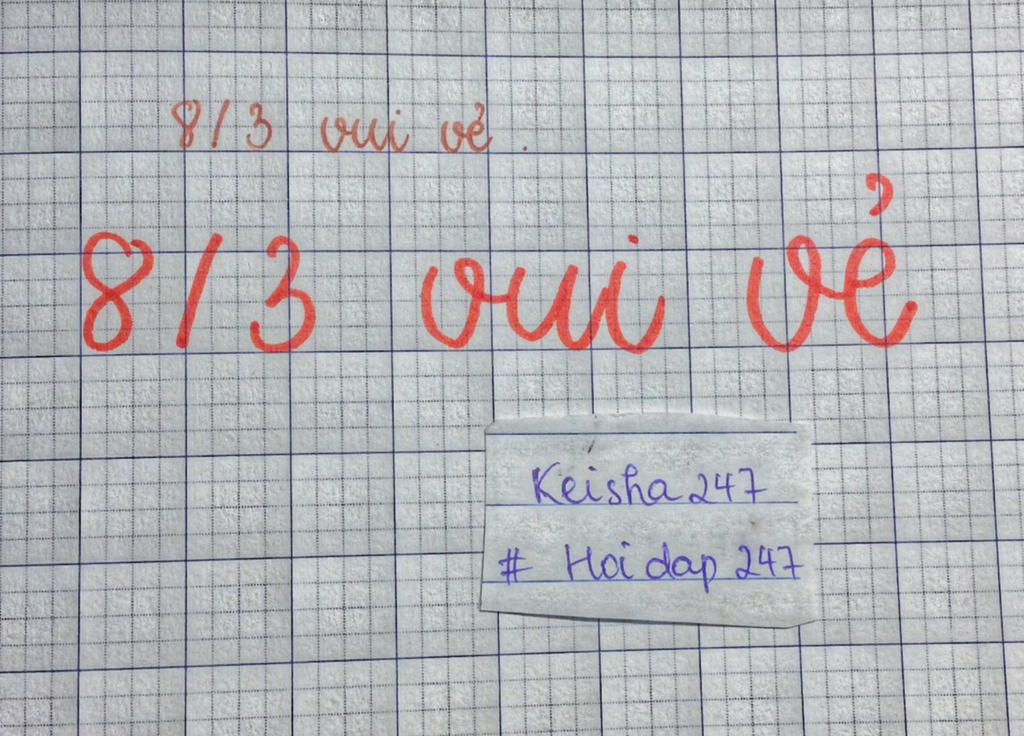 8/3 vui vẻ.
8/3 vui vẻ
Keisha 247
# Hoi dap 247